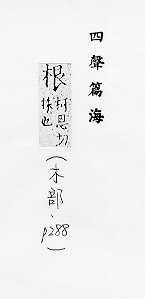 四聲篇海
根 柯恩切
株也
(木部、p288)